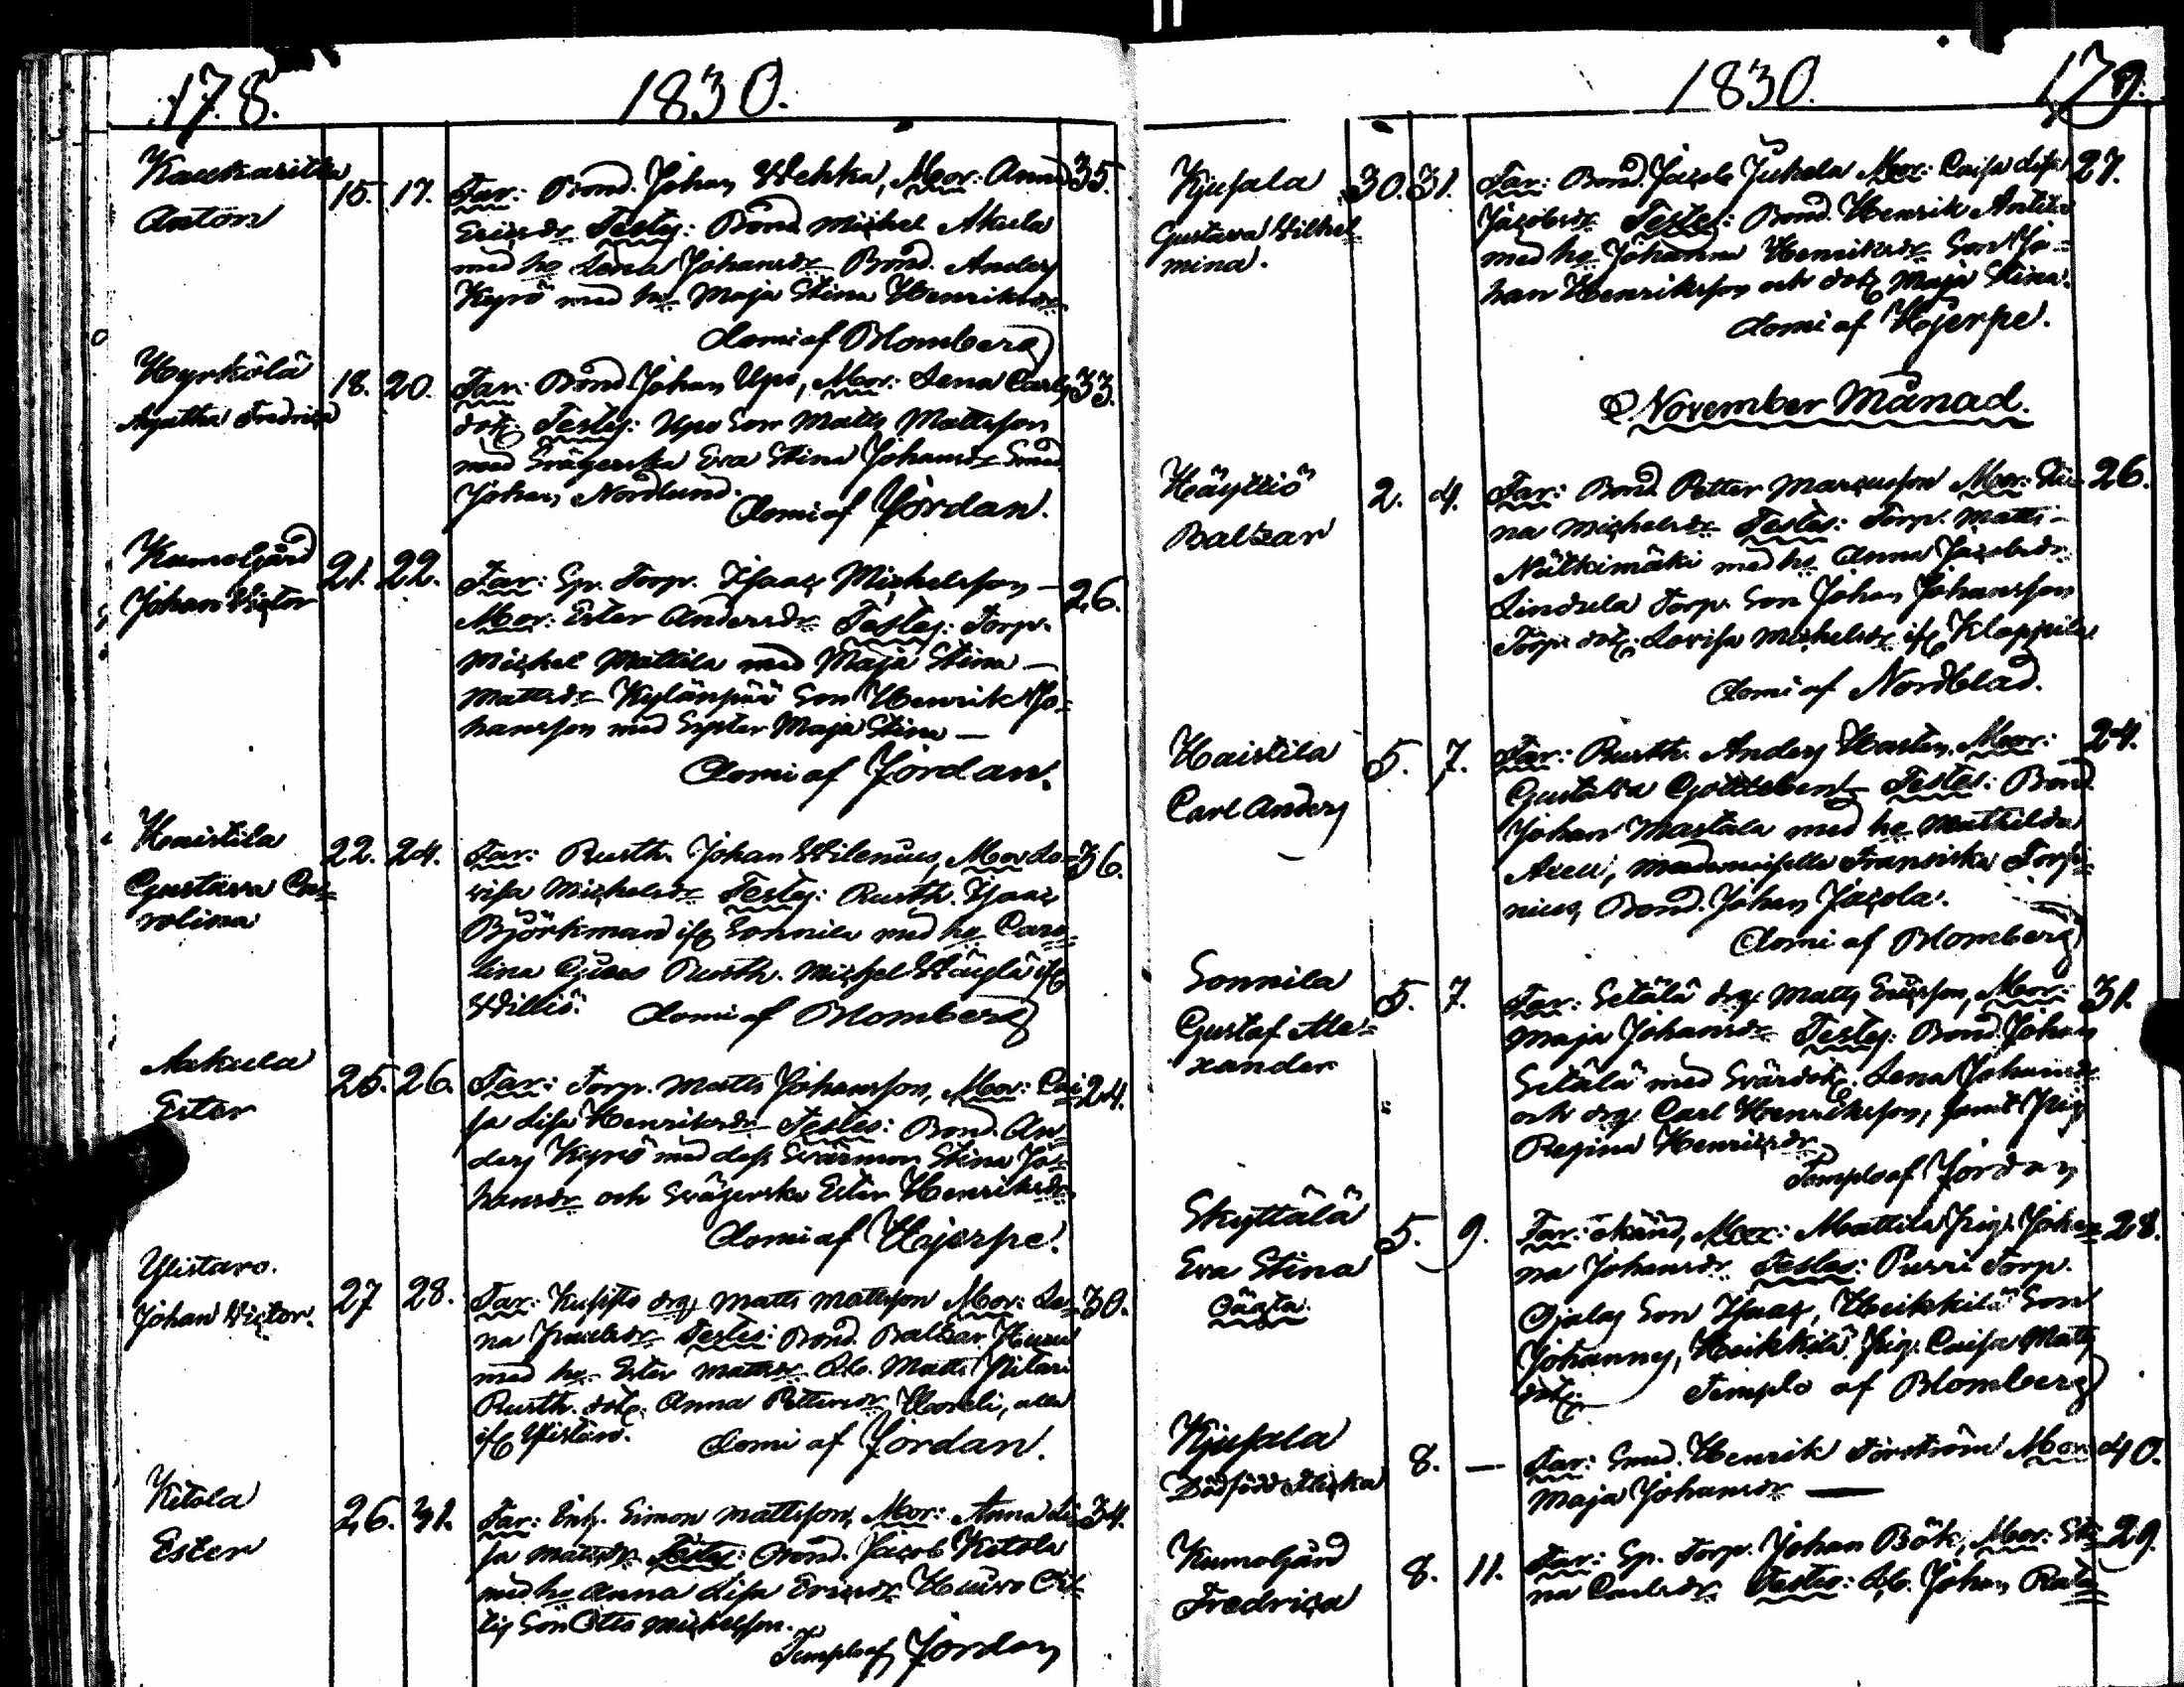 178.
1830.
Kaukaritza
Anton
15. 17.
Far: Bond. Johan Wehka, Mor: Anna 35.
Ericsdr Testes: Bond. Michel Akula
med h. Lena Johansdr Bond. Anders
Kyrö med h. Maja Stina Henriksdr
domi af Blomberg
Hyrkölä
Agatha Fredrica
18. 20.
Far: Bond. Johan Upo, Mor: Lena Carls 33.
dot. Testes: Upo Son Matts Mattsson
med Svägerska Eva Stina Johansdr Smed
Johan Nordlund.
Domi af Jordan.
Kumogård
Johan Victor
21. 22.
Far: Sp. Torp. Isaac Michelsson — 26.
Mor: Ester Andersdr Testes: Torp.
Michel Mattila med Maja Stina —
Mattsdr Kylänpää Son Henrik Jo-
hansson med Syster Maja Stina —
Domi af Jordan.
Haistila
Gustava Ca-
rolina
22. 24.
Far: Rusth. Johan Wilenius, Mor Lo- 36.
visa Michelsdr Testes: Rusth. Isaac
Björkman ifr. Sonnila med h. Caro-
lina Rusth. Michel Häyhlä ifr.
Willio. Domi af Blomberg
Aakula
Ester
25. 26.
Far: Torp. Matts Johansson, Mor: Cai- 24.
sa Lisa Henriksdr Testes: Bond. An-
ders Kyrö med dess Svärmor Stina Jo-
hansdr och Svägerska Ester Henriksdr
Domi af Hjerpe.
Ylistaro.
Johan Victor.
27 28.
Far: Drg Matts Mattsson Mor: Le- 30.
na Testes: Bond. Baltzar
med h. Ester Mattsdr Matts Pitari
Rusth. dot. Anna Pettersdr alla
ifr Ylistaro. Domi af Jordan.
Kitola
Ester
26. 31.
Far: Inh. Simon Mattsson, Mor: Anna Li- 34.
sa Mattsdr Testes: Bond. Jacob Ketola
med h. Anna Lisa Ericsdr
Son Otto Michelsson.
Templo af Jordan
1830.
179.
Kjusala
Gustava Wilhel-
mina.
30. 31.
Far: Bond. Jacob Juhela Mor: Caisa Lisa 27.
Jacobsdr Testes: Bond. Henrik Antila
med h. Johanna Henriksdr Son Jo-
han Henriksson och dot. Maja Stina.
domi af Hjerpe.
November Månad.
Häyttiö
Baltzar
2. 4.
Far: Bond Petter Marcusson Mor: Sti- 26.
na Michelsdr Testes: Torp. Matts
Nätkimäki med h. Anna Jacobsdr
Lindula Torp. Son Johan Johansson
Torp. dot. Lovisa Michelsdr ifr Kloppila
Domi af Nordblad.
Haistila
Carl Anders
5. 7.
Far: Rusth. Anders Hasten, Mor: 24.
Gustava Testes: Bond.
Johan Mastala med h. Mathilda
mademoiselle Fransiska Torsi-
nius, Bond. Johan Jacola.
Domi af Blomberg
Sonnila
Gustaf Ale-
xander
5. 7.
Far: Setälä drg. Matts Ericsson, Mor: 31.
Maja Johansdr Testes: Bond. Johan
Setälä med Svärdot. Lena Johansdr
och drg. Carl Henriksson, samt Pig.
Regina Henricsdr
Templo af Jordan
Skyttälä
Eva Stina
Oäcta.
5. 9.
Far: okänd, Mor: Mattila Pig. Johan- 28.
na Johansdr Testes: Purri Torp.
Ojalas Son Isaac, Heikkilä Son
Johannes, Heikkilä Pig. Caisa Matts
dot. Templo af Blomberg
Kjusala
Dödfödd Flicka
8. —
Far: Smed. Henrik Törström Mor: 40.
Maja Johansdr —
Kumogård
Fredrica
8. 11.
Far: Sp. Torp. Johan Bök, Mor: Sti- 29.
na Carlsdr Testes: Johan